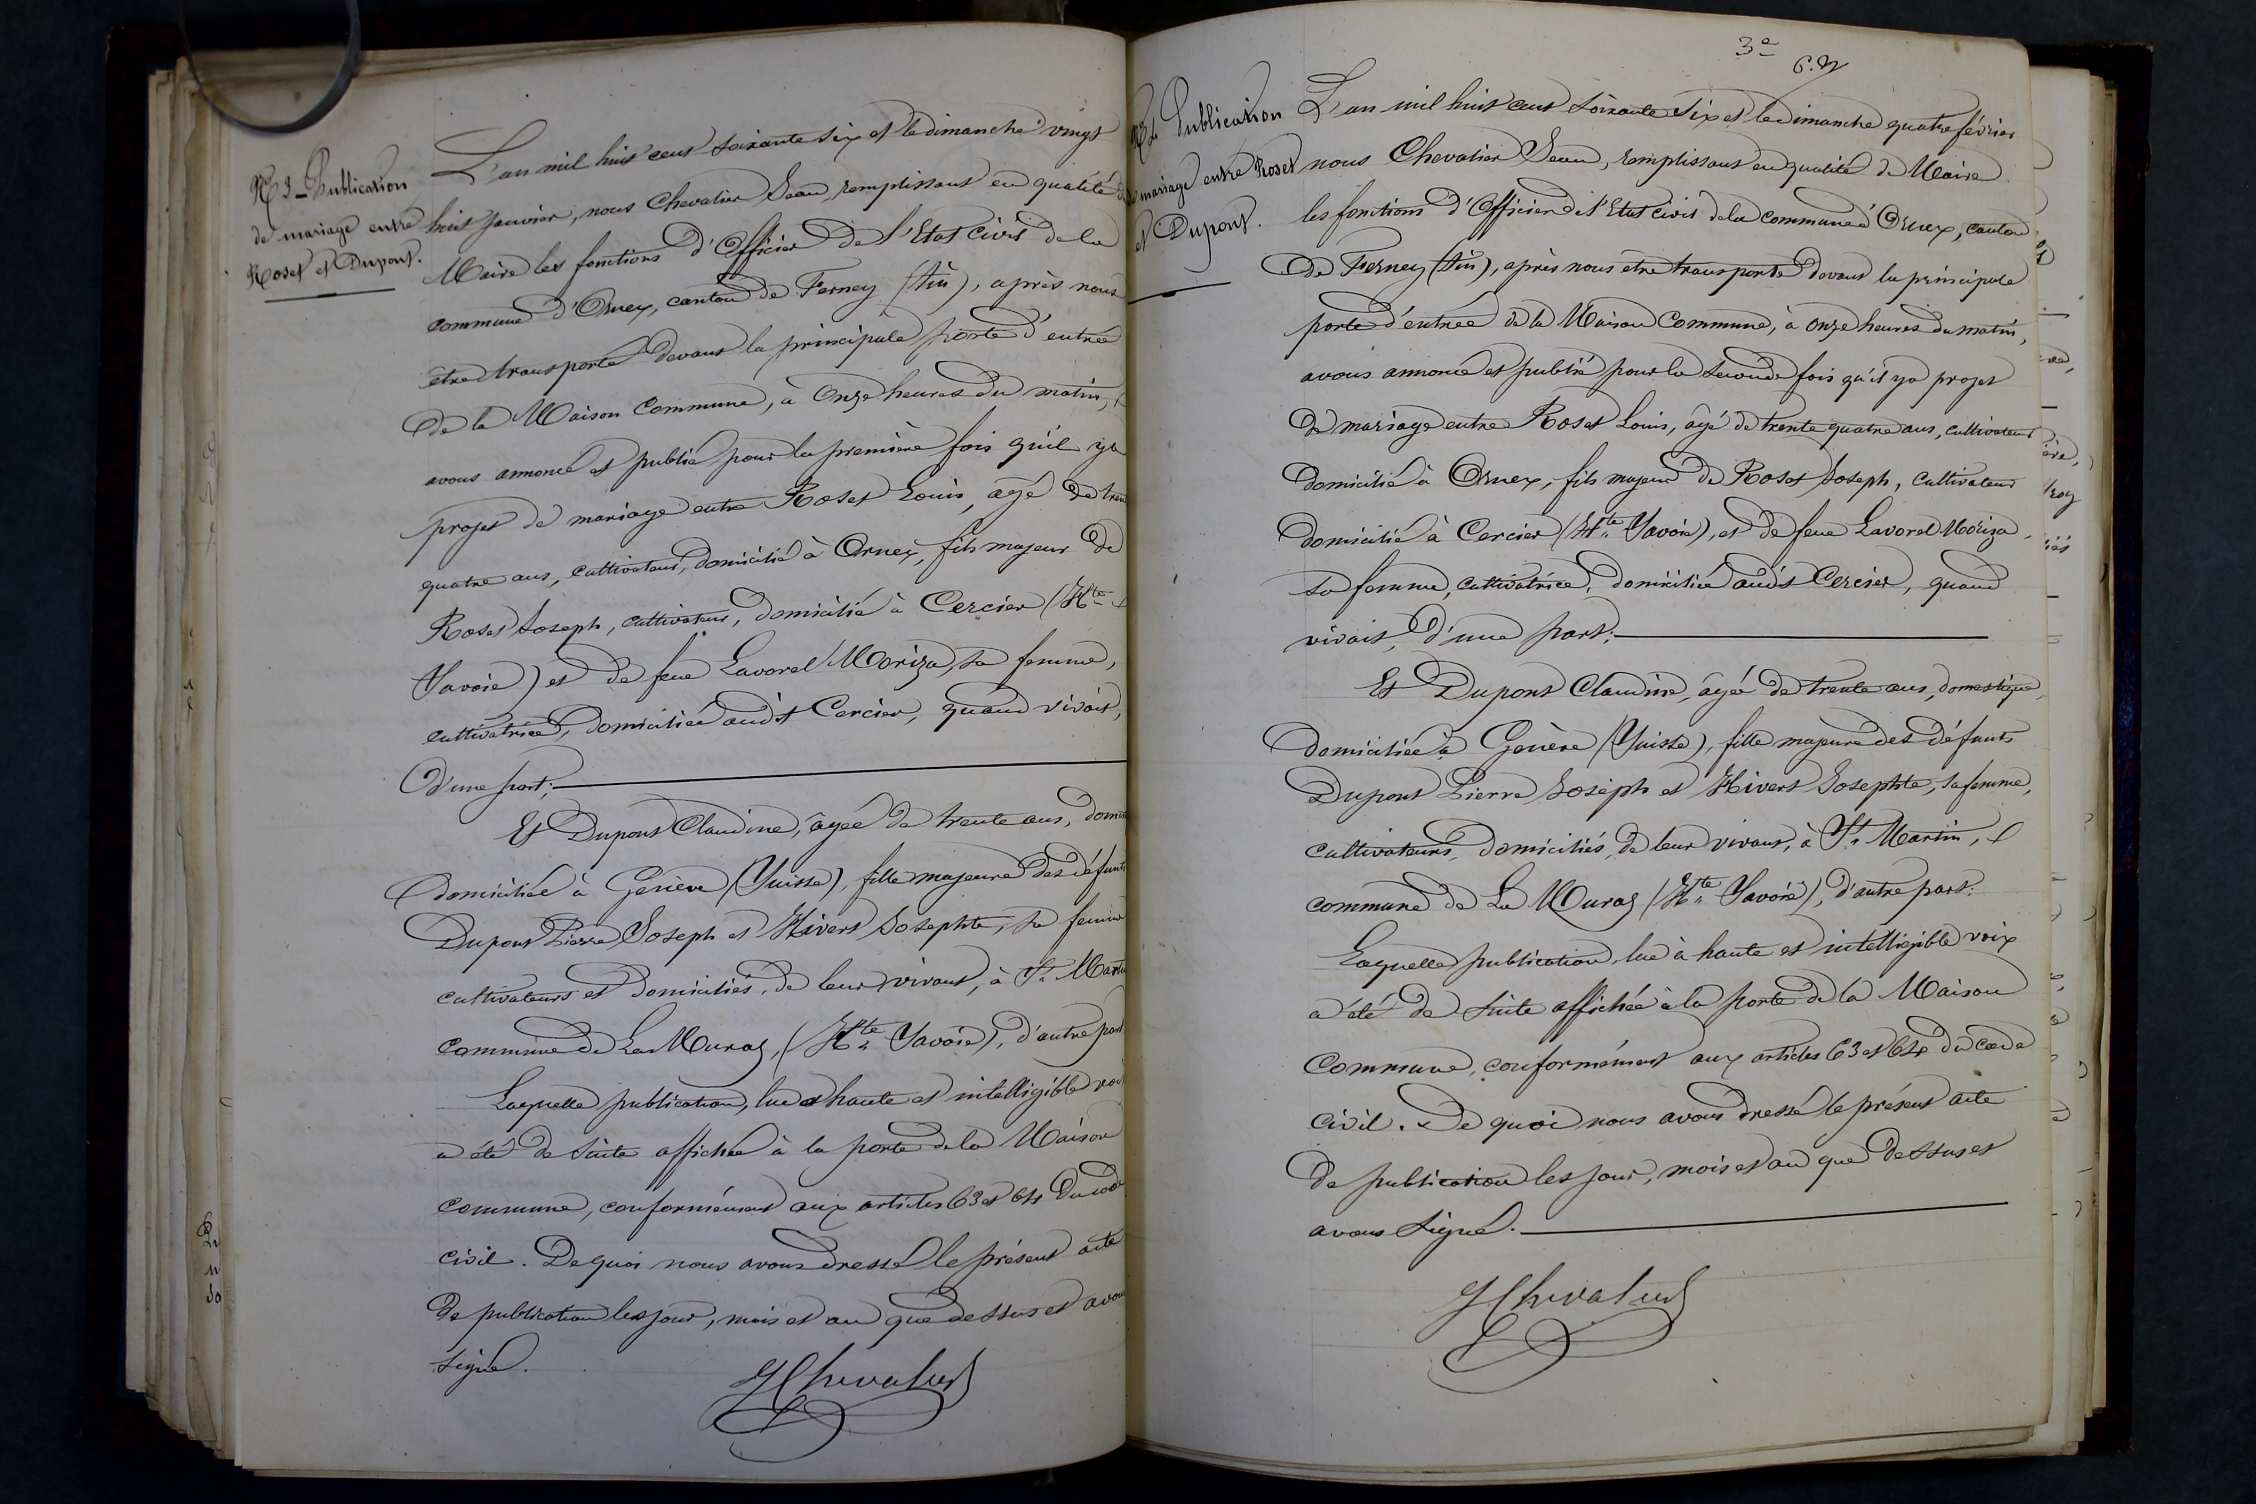 N° 3 - Publication
de mariage entre
Roset et Dupont.
L'an mil huit cent soixante six et le dimanche vingt
huit Janvier, nous Chevalier Jean, remplissant en qualité de
Maire les fonctions d'Officier de l'Etat Civil de la
commune d'Ornex, canton de Ferney (Ain), après nous
être transporté devant la principale porte d'entrée
de la Maison Commune, à Onze heures du matin,
avons annoncé et publié pour la première fois qu'il y a
projet de mariage entre Roset Louis, âgé de trente
quatre ans, cultivateur, domicilié à Ornex, fils majeur de
Roset Joseph, cultivateur, domicilié à Cercier (Hte
Savoie) et de feue Lavorel Moriza, sa femme,
cultivatrice, domiciliée audit Cercier, quand vivait,
d'une part;
Et Dupont Claudine, âgée de trente ans, domes
domiciliée à Genève (Suisse), fille majeure des défunts
Dupont Pierre Joseph et Hivert Josephte, sa femme
cultivateurs et domiciliés, de leur vivant, à St Martin
commune de La Muraz, (Hte Savoie), d'autre part
Laquelle publication, lue à haute et intelligible voix
a été de suite affichée à la porte de la Maison
commune, conformément aux articles 63 et 64 du code
civil. De quoi nous avons dressé le présent acte
de publication les jour, mois et an que dessus et avons
signé.
JChevalier
3e
N° 4 Publication
de mariage entre Roset
et Dupont.
L'an mil huit cent soixante six et le dimanche quatre février
nous Chevalier Jean, remplissant en qualité de Maire
les fonctions d'Officier de l'Etat civil de la commune d'Ornex, canton
de Ferney (Ain), après nous etre transporté devant la principale
porte d'entrée de la Maison Commune, à onze heures du matin,
avons annoncé et publié pour la seconde fois qu'il y a projet
de mariage entre Roset Louis, âgé de trente quatre ans, cultivateur
domicilié à Ornex, fils majeur de Roset Joseph, cultivateur
domicilié à Cercier (Hte Savoie), et de feue Lavorel Moriza
sa femme, cultivatrice, domiciliée audit Cercier, quand
vivait, d'une part;
Et Dupont Claudine, âgée de trente ans, domestique,
domiciliée à Genève (Suisse), fille majeure des défunts
Dupont Pierre Joseph et Hivert Josephte, sa femme,
cultivateurs, domiciliés, de leur vivant, à St Martin,
commune de La Muraz (Hte Savoie), d'autre part.
Laquelle publication, lue à haute et intelligible voix
a été de suite affichée à la porte de la Maison
Commune, conformément aux articles 63 et 64 du code
civil. De quoi nous avons dressé le présent acte
de publication les jour, mois et an que dessus et
avons signé.
JChevalier